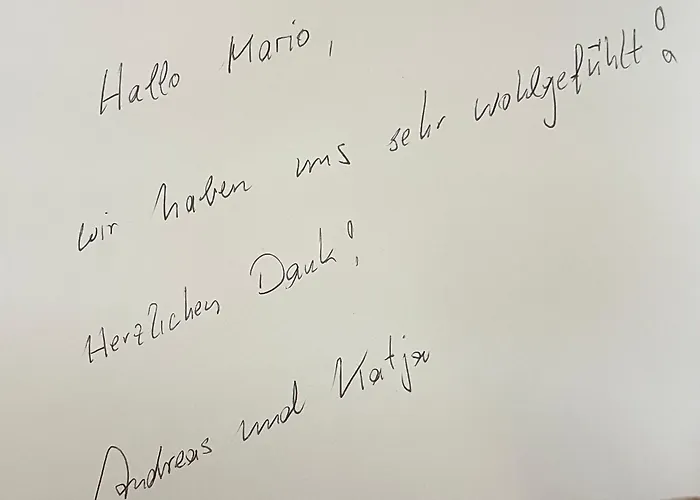 Hallo Mario,
wir haben uns sehr wohlgefühlt!
Herzlichen Dank!
Andreas und Katja